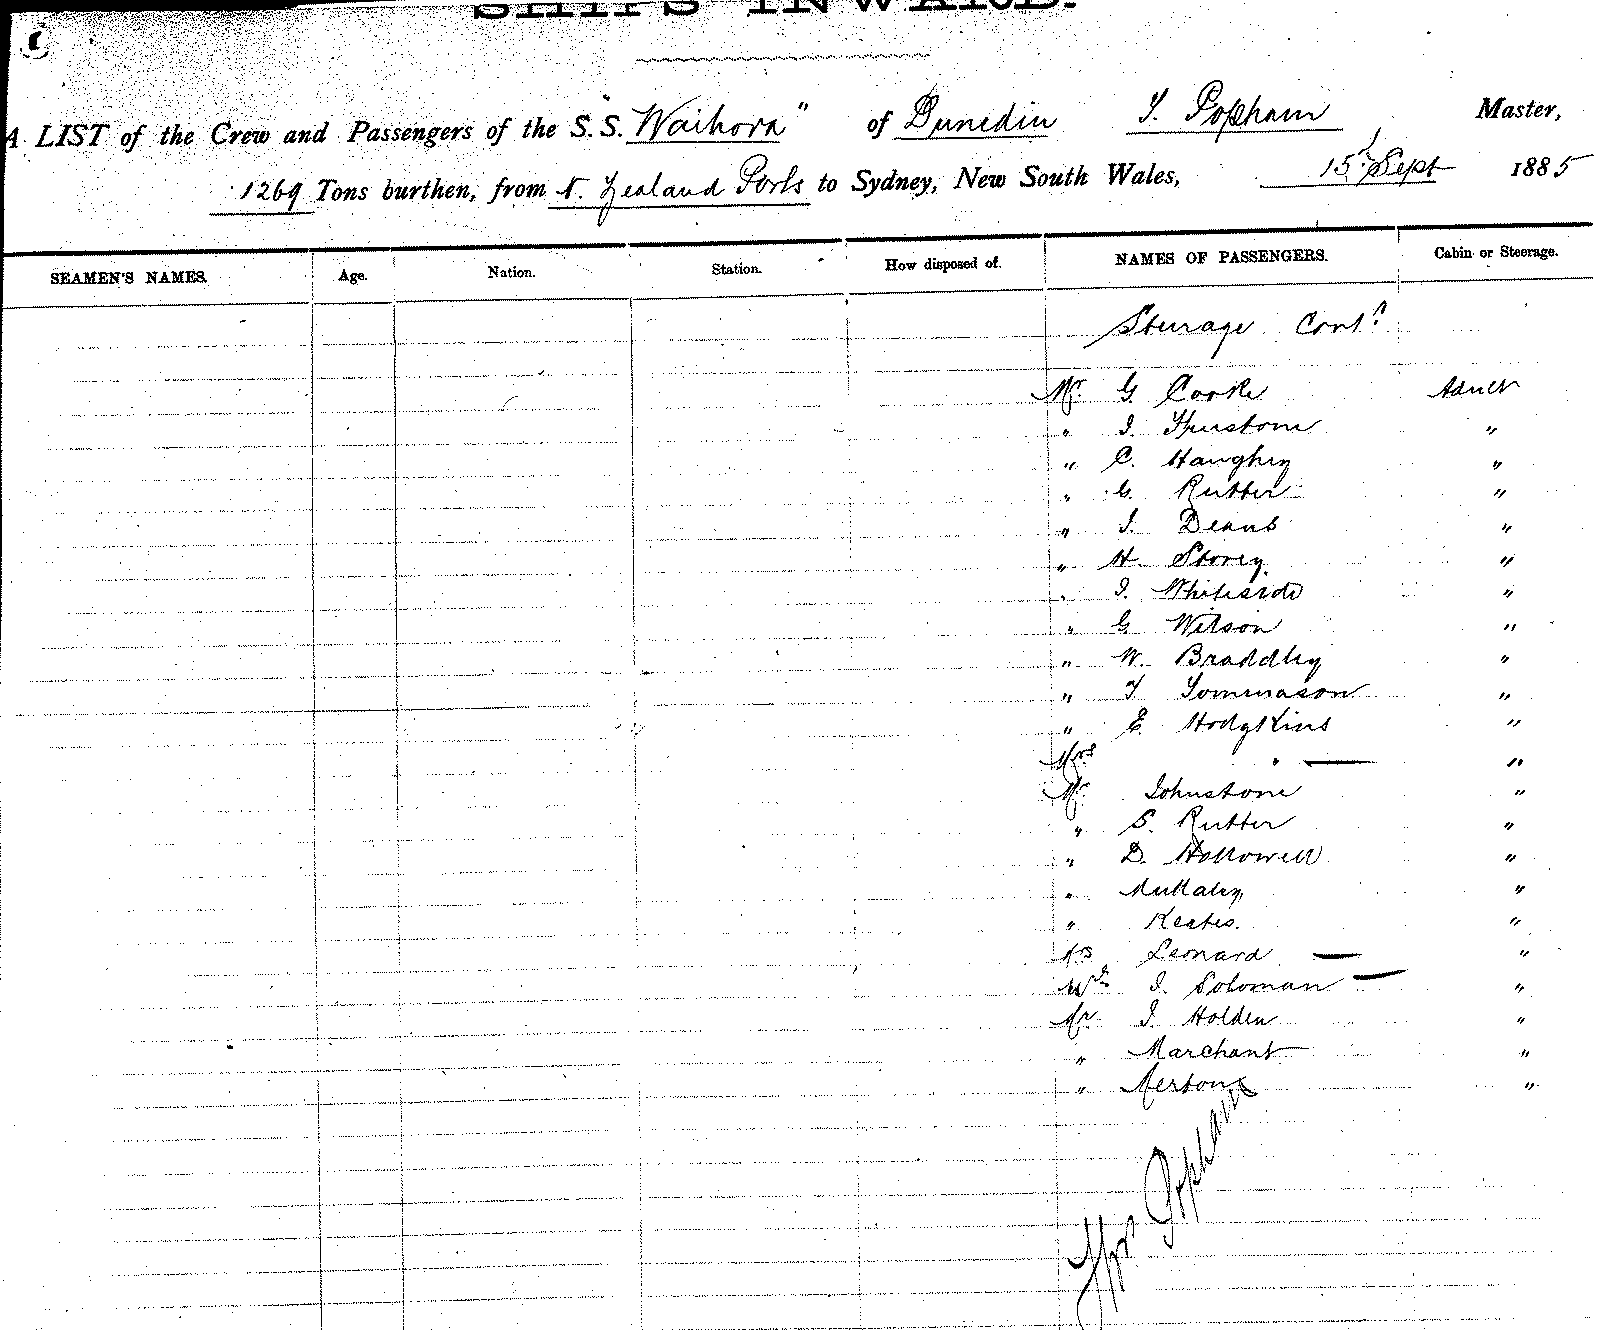 SHIPS INWARD.
A LIST of the Crew and Passengers of the S.S. Waihora" of Dunedin T. Popham Master,
1269 Tons burthen, from N. Zealand Ports to Sydney, New South Wales, 15 Sept 1885
SEAMEN'S NAMES. Age. Nation. Station. How disposed of. NAMES OF PASSENGERS. Cabin or Steerage.
Steerage Cont.d
Mr. G Cooke Adult
" J. "
" C. Haughey "
" G. Rutter "
" J. Deans "
" H Storey "
" J. Whiteside "
" G Wilson "
" W. Braddley "
" T Tommason "
" E. Hodgkins "
Mrs " — "
Mr. Johnstone "
" S. Rutter "
" D. Hollowell "
" Mullaley "
" Keates. "
Mrs Leonard — "
J. Soloman — "
Mr. J. Holden "
" Marchant "
" Merton "
Popham